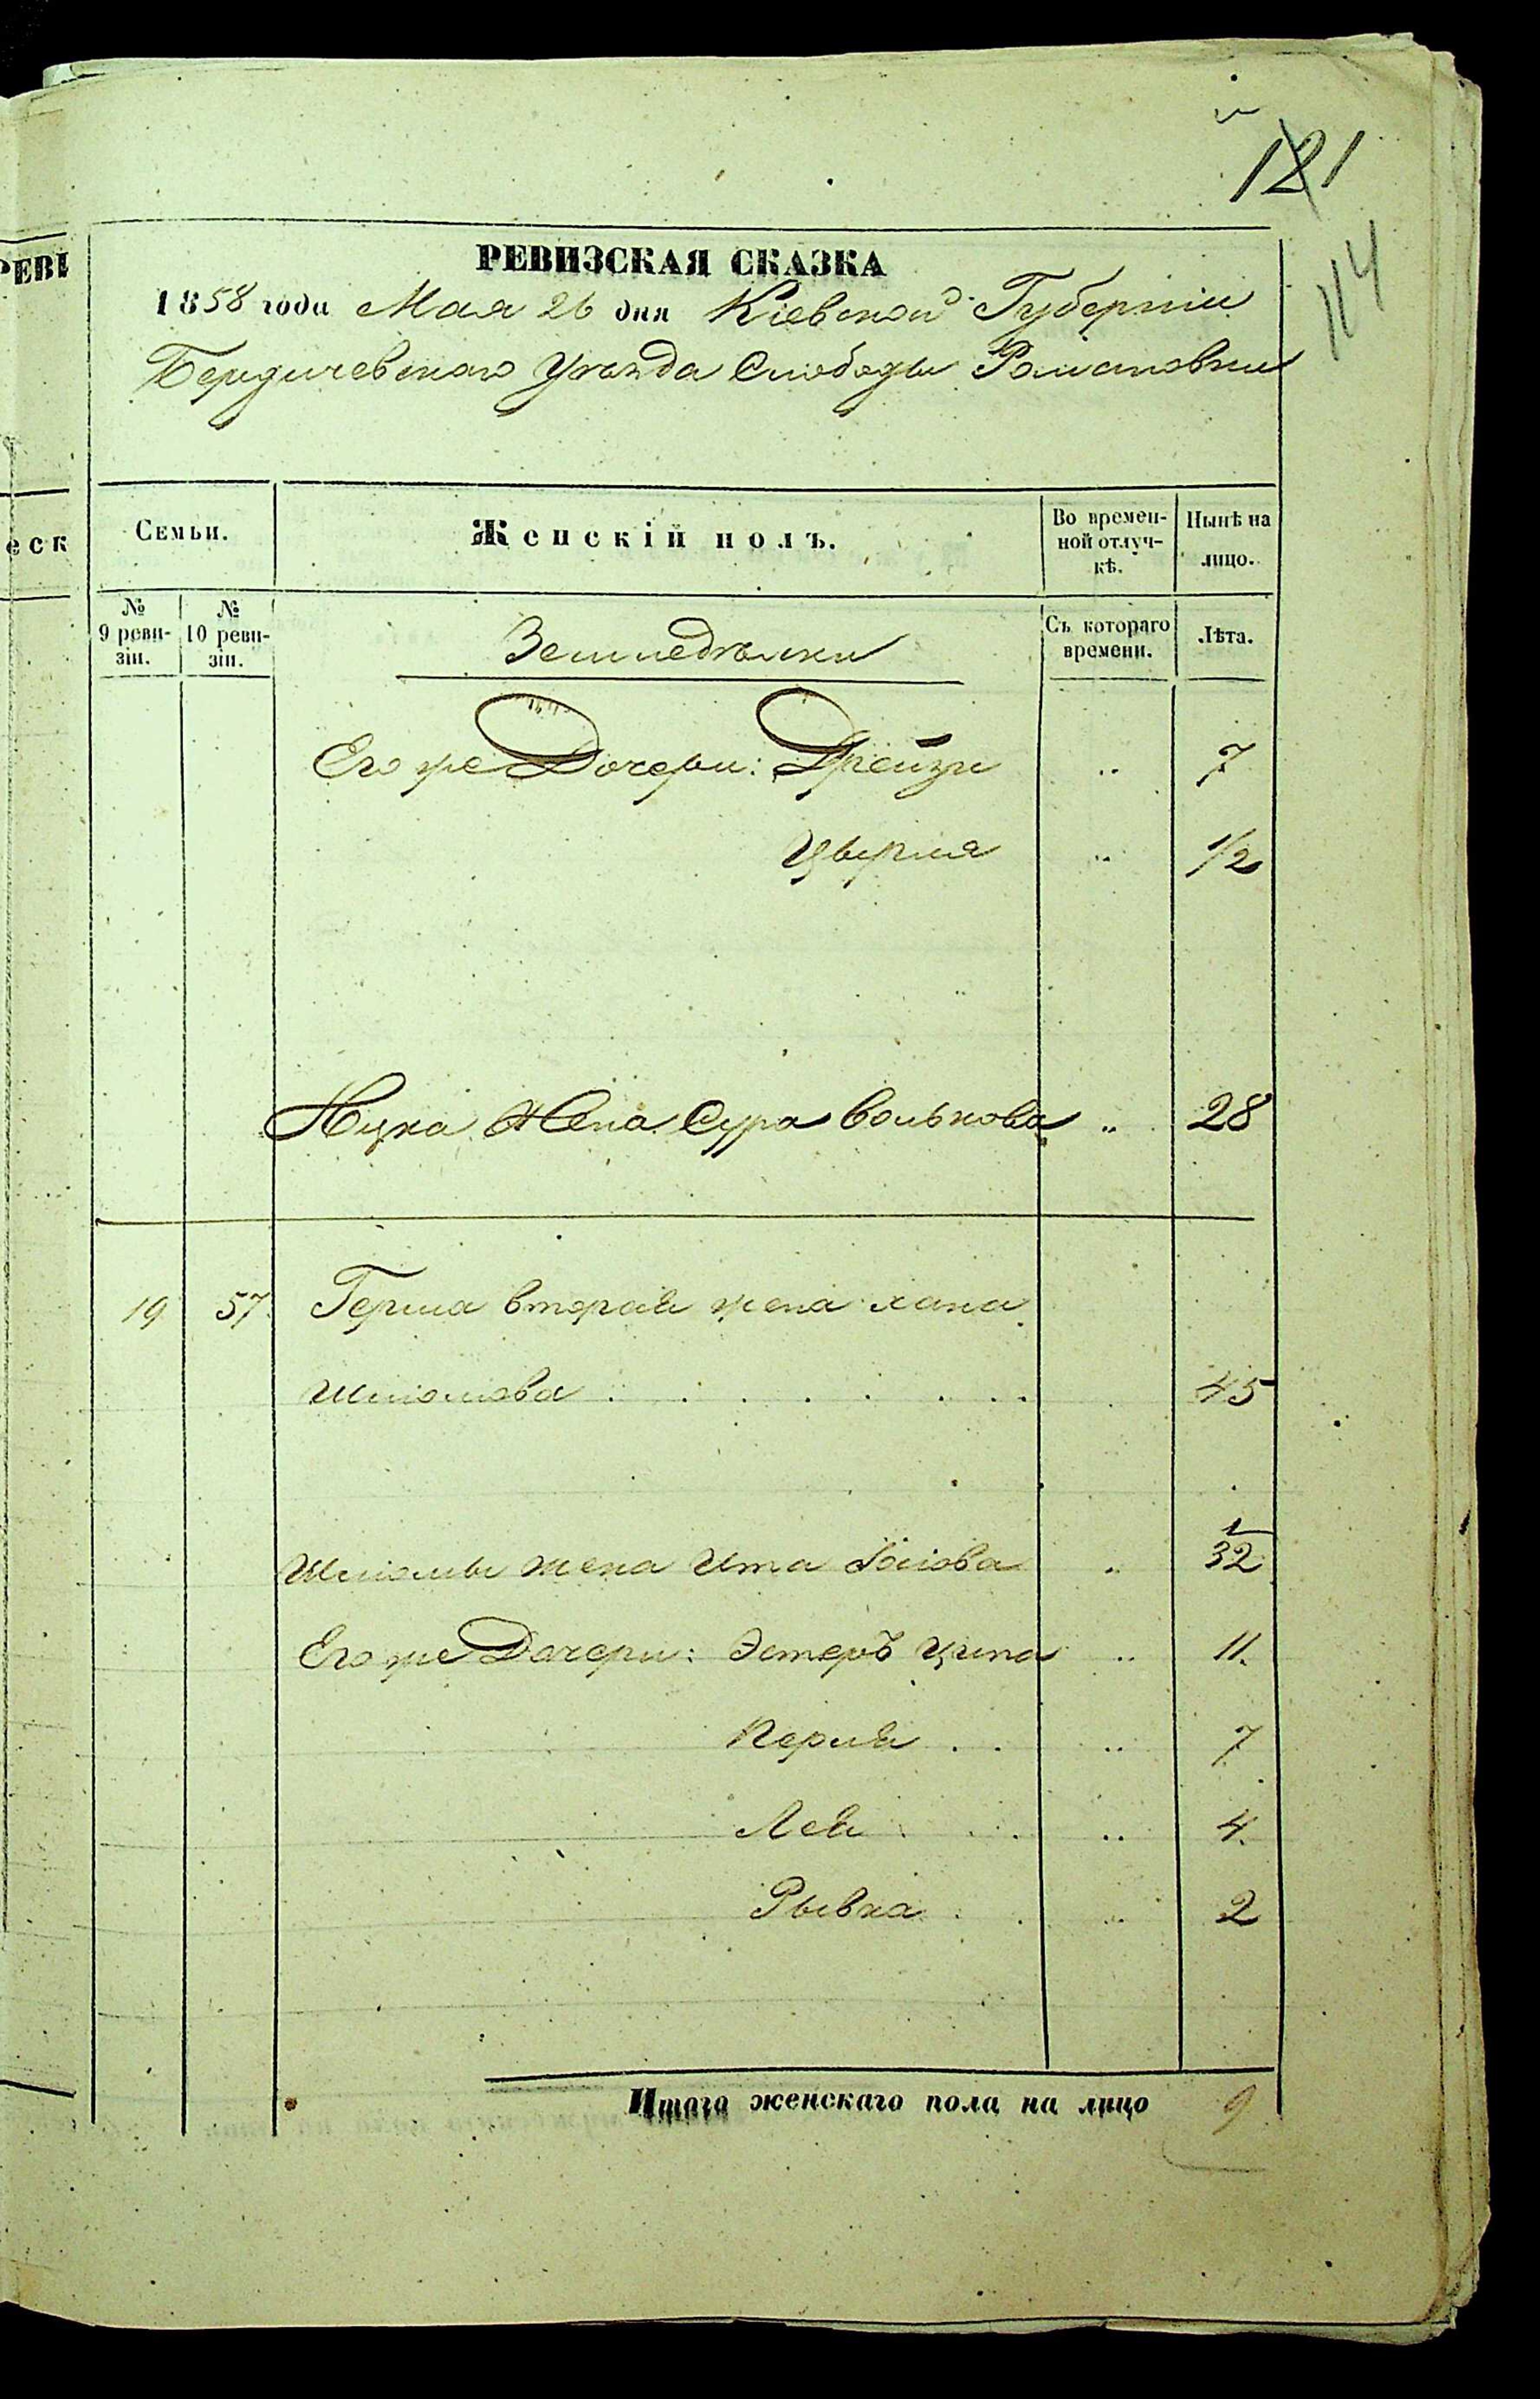 121
114
РЕВИЗСКАЯ СКАЗКА
1858 года Мая 26 дня Кіевской Губерніи
Бердичевскаго Уѣзда Слободы Романовки
Семьи.
Женскій полъ.
Во времен-
ной отлуч-
кѣ.
Нынѣ на
лицо.
№
9 реви-
зіи.
№
10 реви-
зіи.
Земледѣльки
Съ котораго
времени.
Лѣта.
Его же Дочери: Дрейзя .. 7
.. 1/2
Ицка Жена Сура Волькова .. 28
19 57 Герша вторая жена хана
Шліомова . . . . . . . 45
1
Шліомы жена Ита .. 32
Его же Дочери: Эстеръ Ципа .. 11.
Перля . . .. 7
Лея . . . .. 4.
Рывка . . .. 2
Итого женскаго пола на лицо 9
РЕВІ
еск